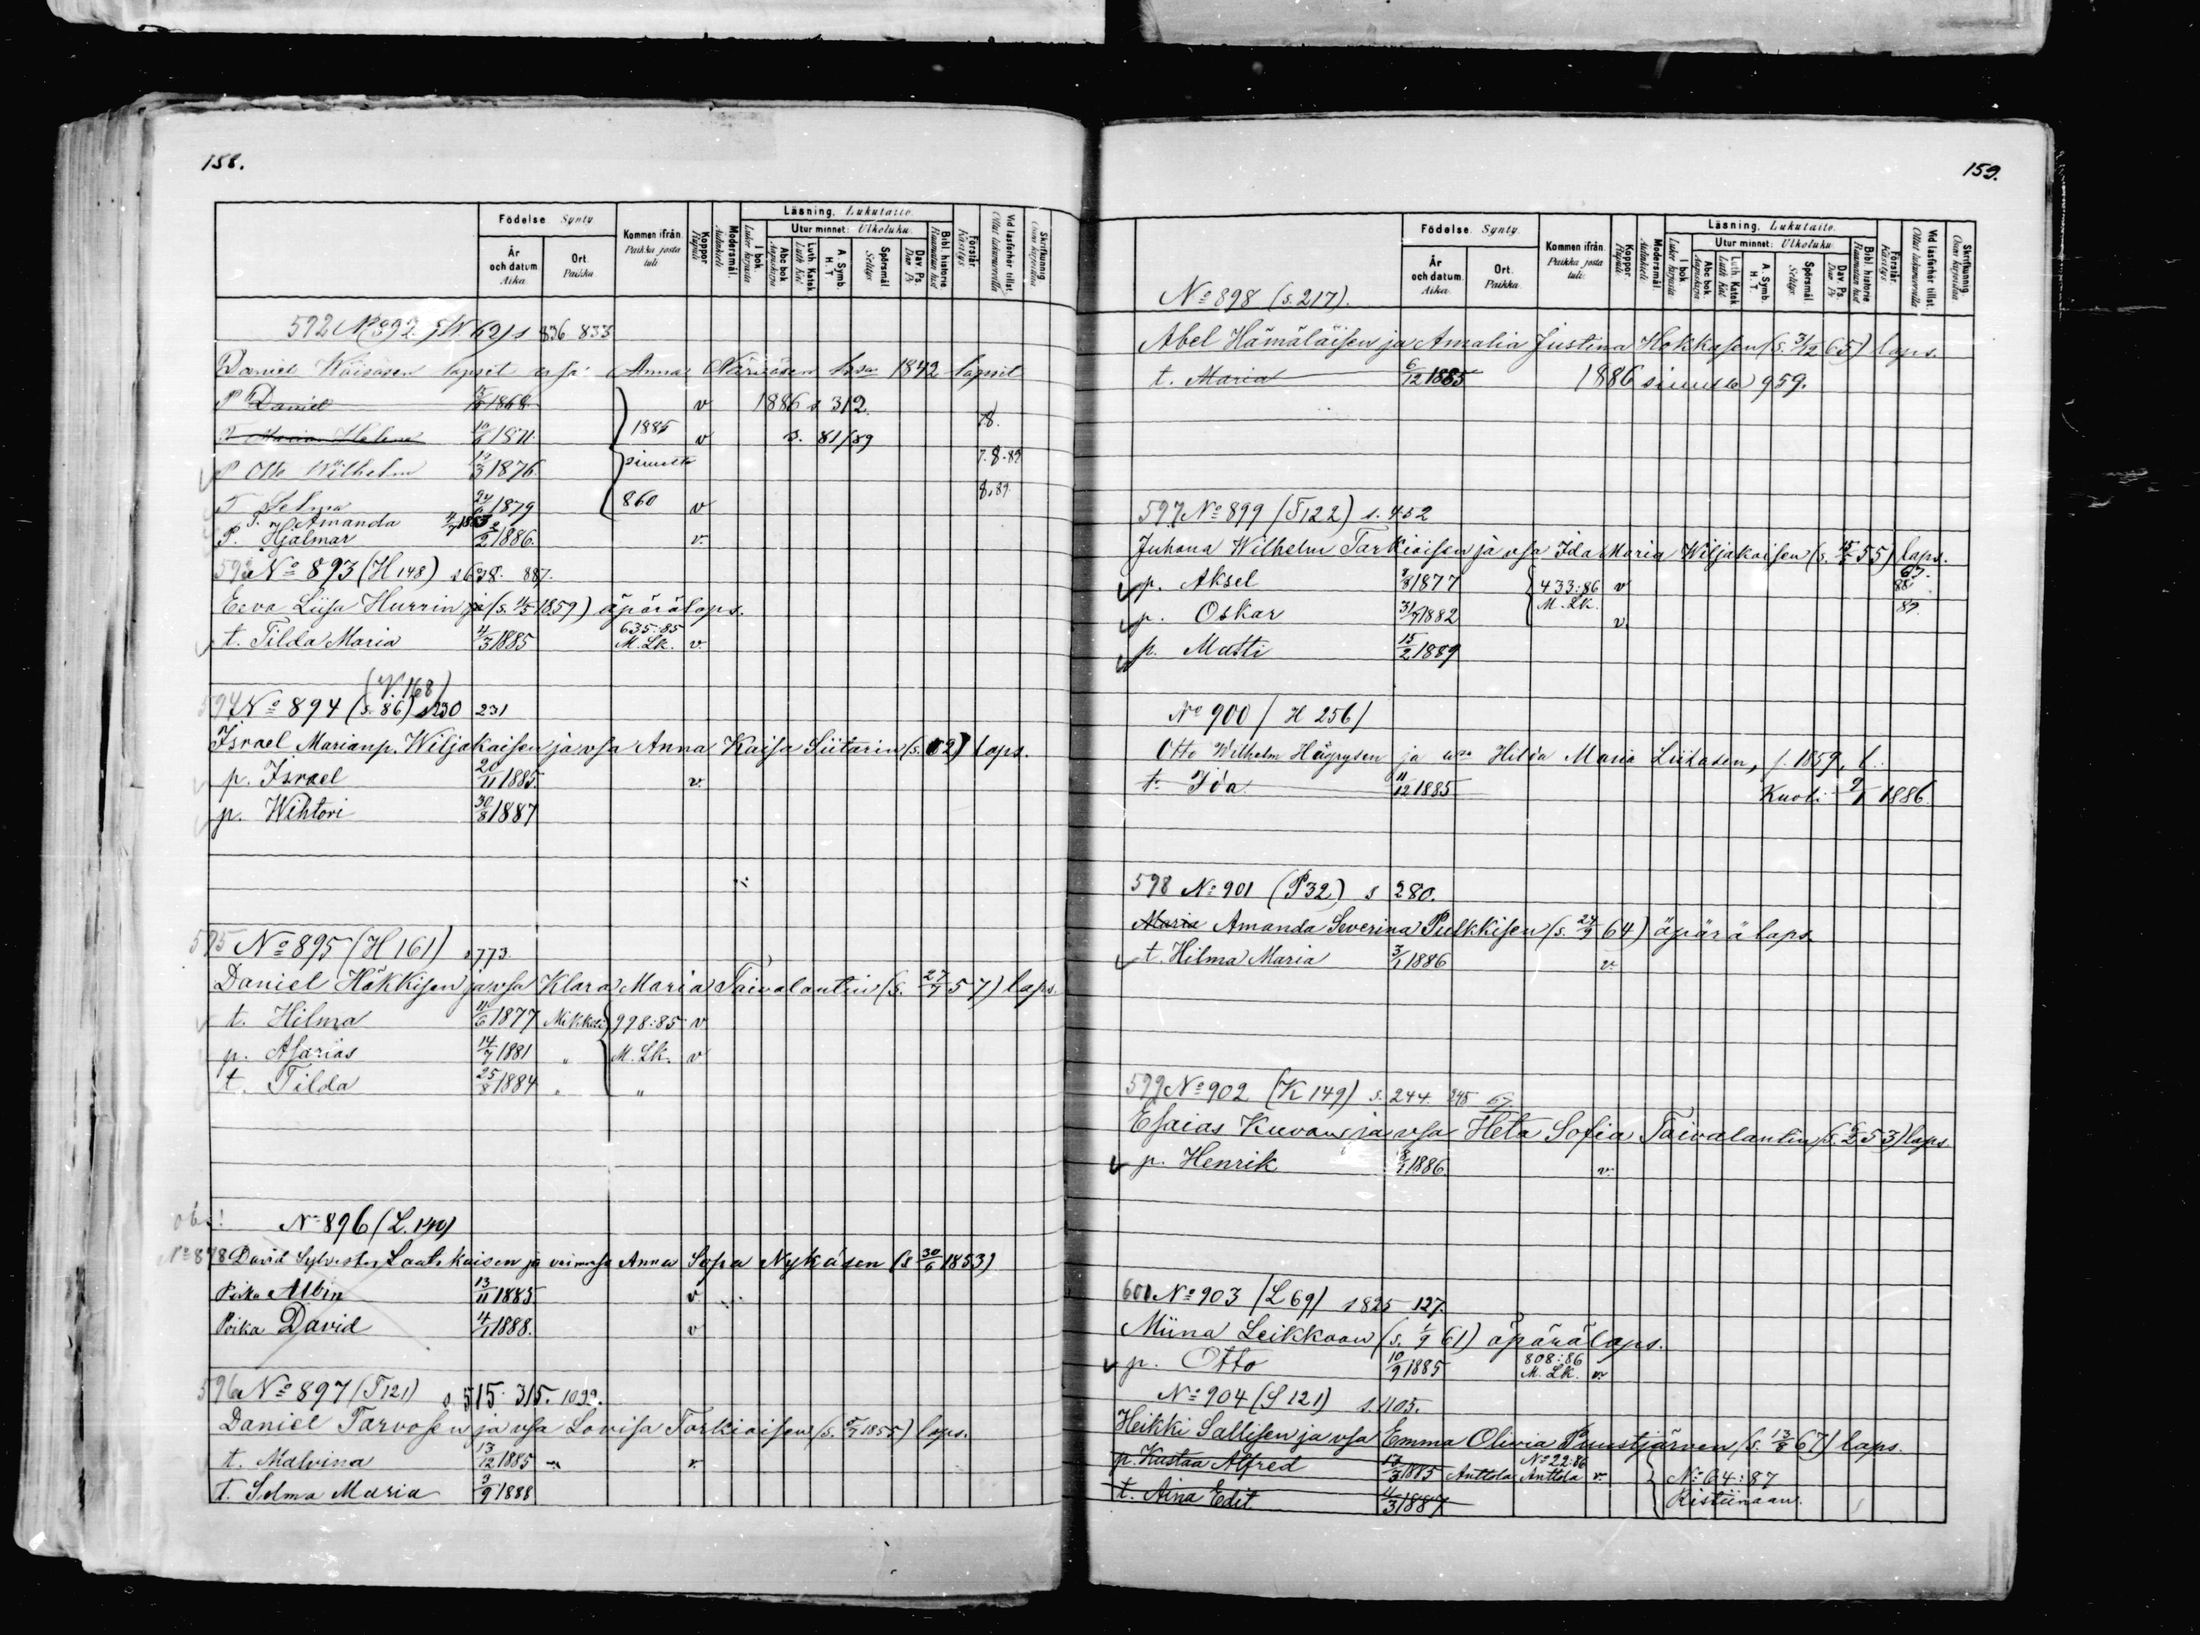 158.
Födelse. Synty.
År och datum. Aika.
Ort. Paikka.
Kommen ifrån. Paikka josta tuli
Koppor. Rupuli
Modersmål. Äidinkieli
Läsning. Lukutaito.
I bok. Luku kirjasta
Utur minnet: Ulkoluku.
Abc bok. Aapiskirja
Luth. Katek. Luth. Kat.
A. Symb. H. T.
Spörsmål Selitys
Dav. Ps. Dav. Ps.
Bibl. historie
Förstår. Käsitys
Vid läsförhör tillst.
Skrifkunnig.
592 No 892 s 836 833
Daniel Wäisäsen lapset Anna 1842 lapset
P Daniel 1868 v 1886 s 312.
T Maria Helena 10/6 1871 1885 v s. 81/89 78.
P Otto Wilhelm 1876 sivusta 7.8.89
T Selma 24/ 1879 860 v 8.89
T. Amanda
P. Hjalmar 2/2 1886. v.
593 No 893 (H 148) s 638. 887.
Eeva Liisa Hurrin (s. 11/5 1859) äpärälaps.
t. Tilda Maria 4/3 1885 635:85 M. Lk. v.
(V. 168)
594 No 894 (s. 86) s 230 231
Israel Marianp. Wiljakaisen ja vsa Anna Kaisa Siitarin (s. 62) laps.
p. Israel 20/11 1885. v.
p. Wihtori 30/8 1887
595 No 895 (H 161) s 773
Daniel Häkkisen ja vsa Klara Maria Taivalantin (s. 27/7 57) laps.
t. Hilma 11/6 1877 Mikkeli 998:85 v
p. Asarias 14/7 1881 " M. Lk. v
t. Tilda 25/8 1884 " "
obs! No 896 (L. 140)
No 878 David Sylvester Laatikaisen ja vaimonsa Anna Sofia Nykäsen (s 30/6 1853)
Poika Albin 13/11 1885 v
Poika David 4/1 1888. v
596 No 897 (T 121) s 515. 315. 1022.
Daniel Tarvosen ja vsa Lovisa Torkiaisen (s. 1855) laps.
t. Malvina 13/12 1885 v
T. Selma Maria 3/9 1888
159.
Födelse. Synty.
År och datum. Aika.
Ort. Paikka.
Kommen ifrån. Paikka josta tuli.
Koppor. Rupuli
Modersmål. Äidinkieli
Läsning. Lukutaito.
I bok. Luku kirjasta
Utur minnet: Ulkoluku.
Abc bok. Aapiskirja
Luth. Katek. Luth. Kat.
A. Symb. H. T.
Spörsmål Selitys.
Dav. Ps. Dav. Ps.
Bibl. historie
Förstår. Käsitys
Vid läsförhör tillst.
Skrifkunnig.
No 898 (s. 217).
Abel Hämäläisen ja Amalia Justina Hokkasen (s. 3/12 65) laps.
t. Maria 6/12 1885 1886 sivulle 959.
597 No 899 (T 122) s. 452
Juhana Wilhelm Tarkiaisen ja vsa Ida Maria Wiljakaisen (s. 55) laps.
p. Aksel 1877 433:86 v 88.
p. Oskar 31/7 1882 M. Lk. v. 89
p. Matti 15/2 1889
No 900 / H 256/
Otto Wilhelm Häyrysen ja vsa Hilda Maria Liikasen, s. 1859, l.
t. Ida 11/12 1885 Kuoli 9/1 1886.
598 No 901 (P 32) s 280.
Maria Amanda Severina Pulkkisen (s. 24/9 64) äpärälaps.
t. Hilma Maria 3/1 1886 v.
599 No 902 (K 149) s. 244. 245 67
Esaias Kuvan ja vsa Heta Sofia Taivalantin (s. 53) laps
p. Henrik 8/1 1886. v.
600 No 903 (L 69) s 825 127.
Miina Leikkoan (s. 1/9 61) äpärälaps.
p. Otto 10/9 1885 808:86 M. Lk. v.
No 904 (S 121) s. 1105.
Heikki Sallisen ja vsa Emma Olivia Puustjärven (s. 13/8 67) laps.
p. Kustaa Alfred 1885 Anttola No 22:86 Anttola v. No 64:87
t. Aina Edit 11/3 1887 Ristiinaan.